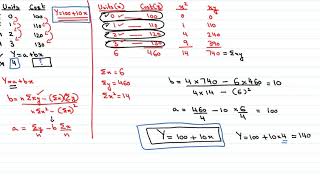 Units Cost
0 100
1 110
2 120
3 130
Y=a+bx
4 ?
Y=100+10x
Y=a+bx
b = nΣxy-(Σx)(Σy) / nΣx²-(Σx)²
a = Σy/n - b Σx/n
Units(x) Cost(y) x² xy
0 - 100 0 0
1 - 110 1 110
2 - 120 4 240
3 - 130 9 390
6 460 14 740 = Σxy
Σx = 6
Σy = 460
Σx² = 14
b = 4 x 740 - 6 x 460 / 4 x 14 - (6)² = 10
a = 460/4 - 10 x 6/4 = 100
Y = 100 + 10x
Y = 100 + 10 x 4 = 140